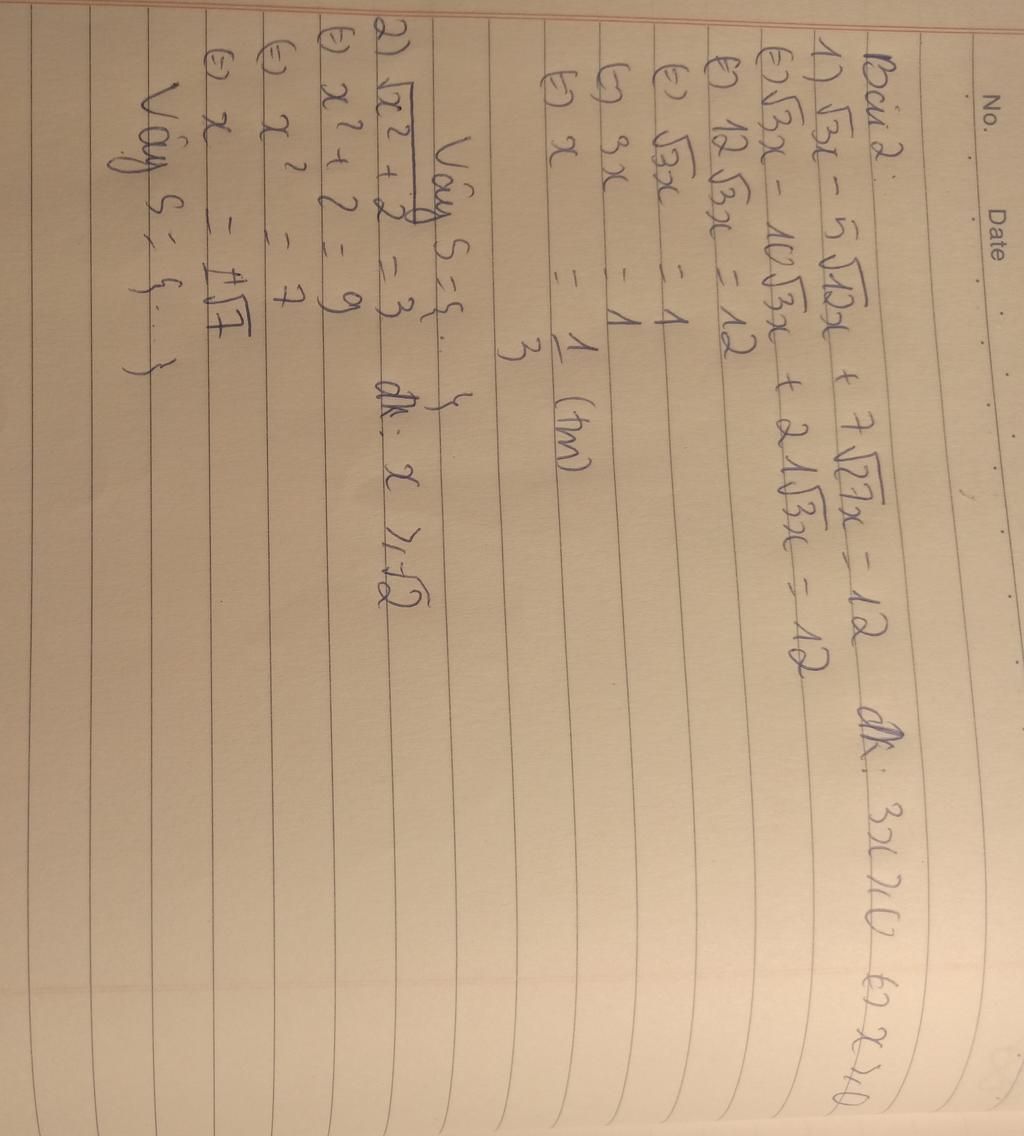 No.
Date
Bài 2:
1) √3x - 5√12x + 7√27x = 12 đk: 3x ⩾ 0 (=) x ⩾ 0
(=) √3x - 10√3x + 21√3x = 12
(=) 12√3x = 12
(=) √3x = 1
(=) 3x = 1
(=) x = 1/3 (tm)
Vậy S = {... }
2) √x² + 2 = 3 đk: x ⩾ -√2
(=) x² + 2 = 9
(=) x² = 7
(=) x = ±√7
Vậy S = {... }